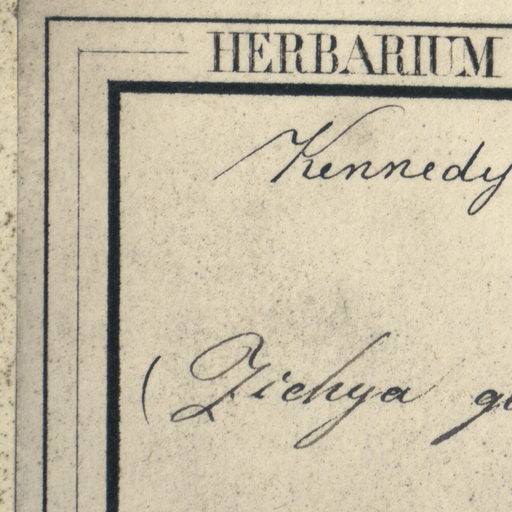 HERBARIUM
Kennedy
(Zichya